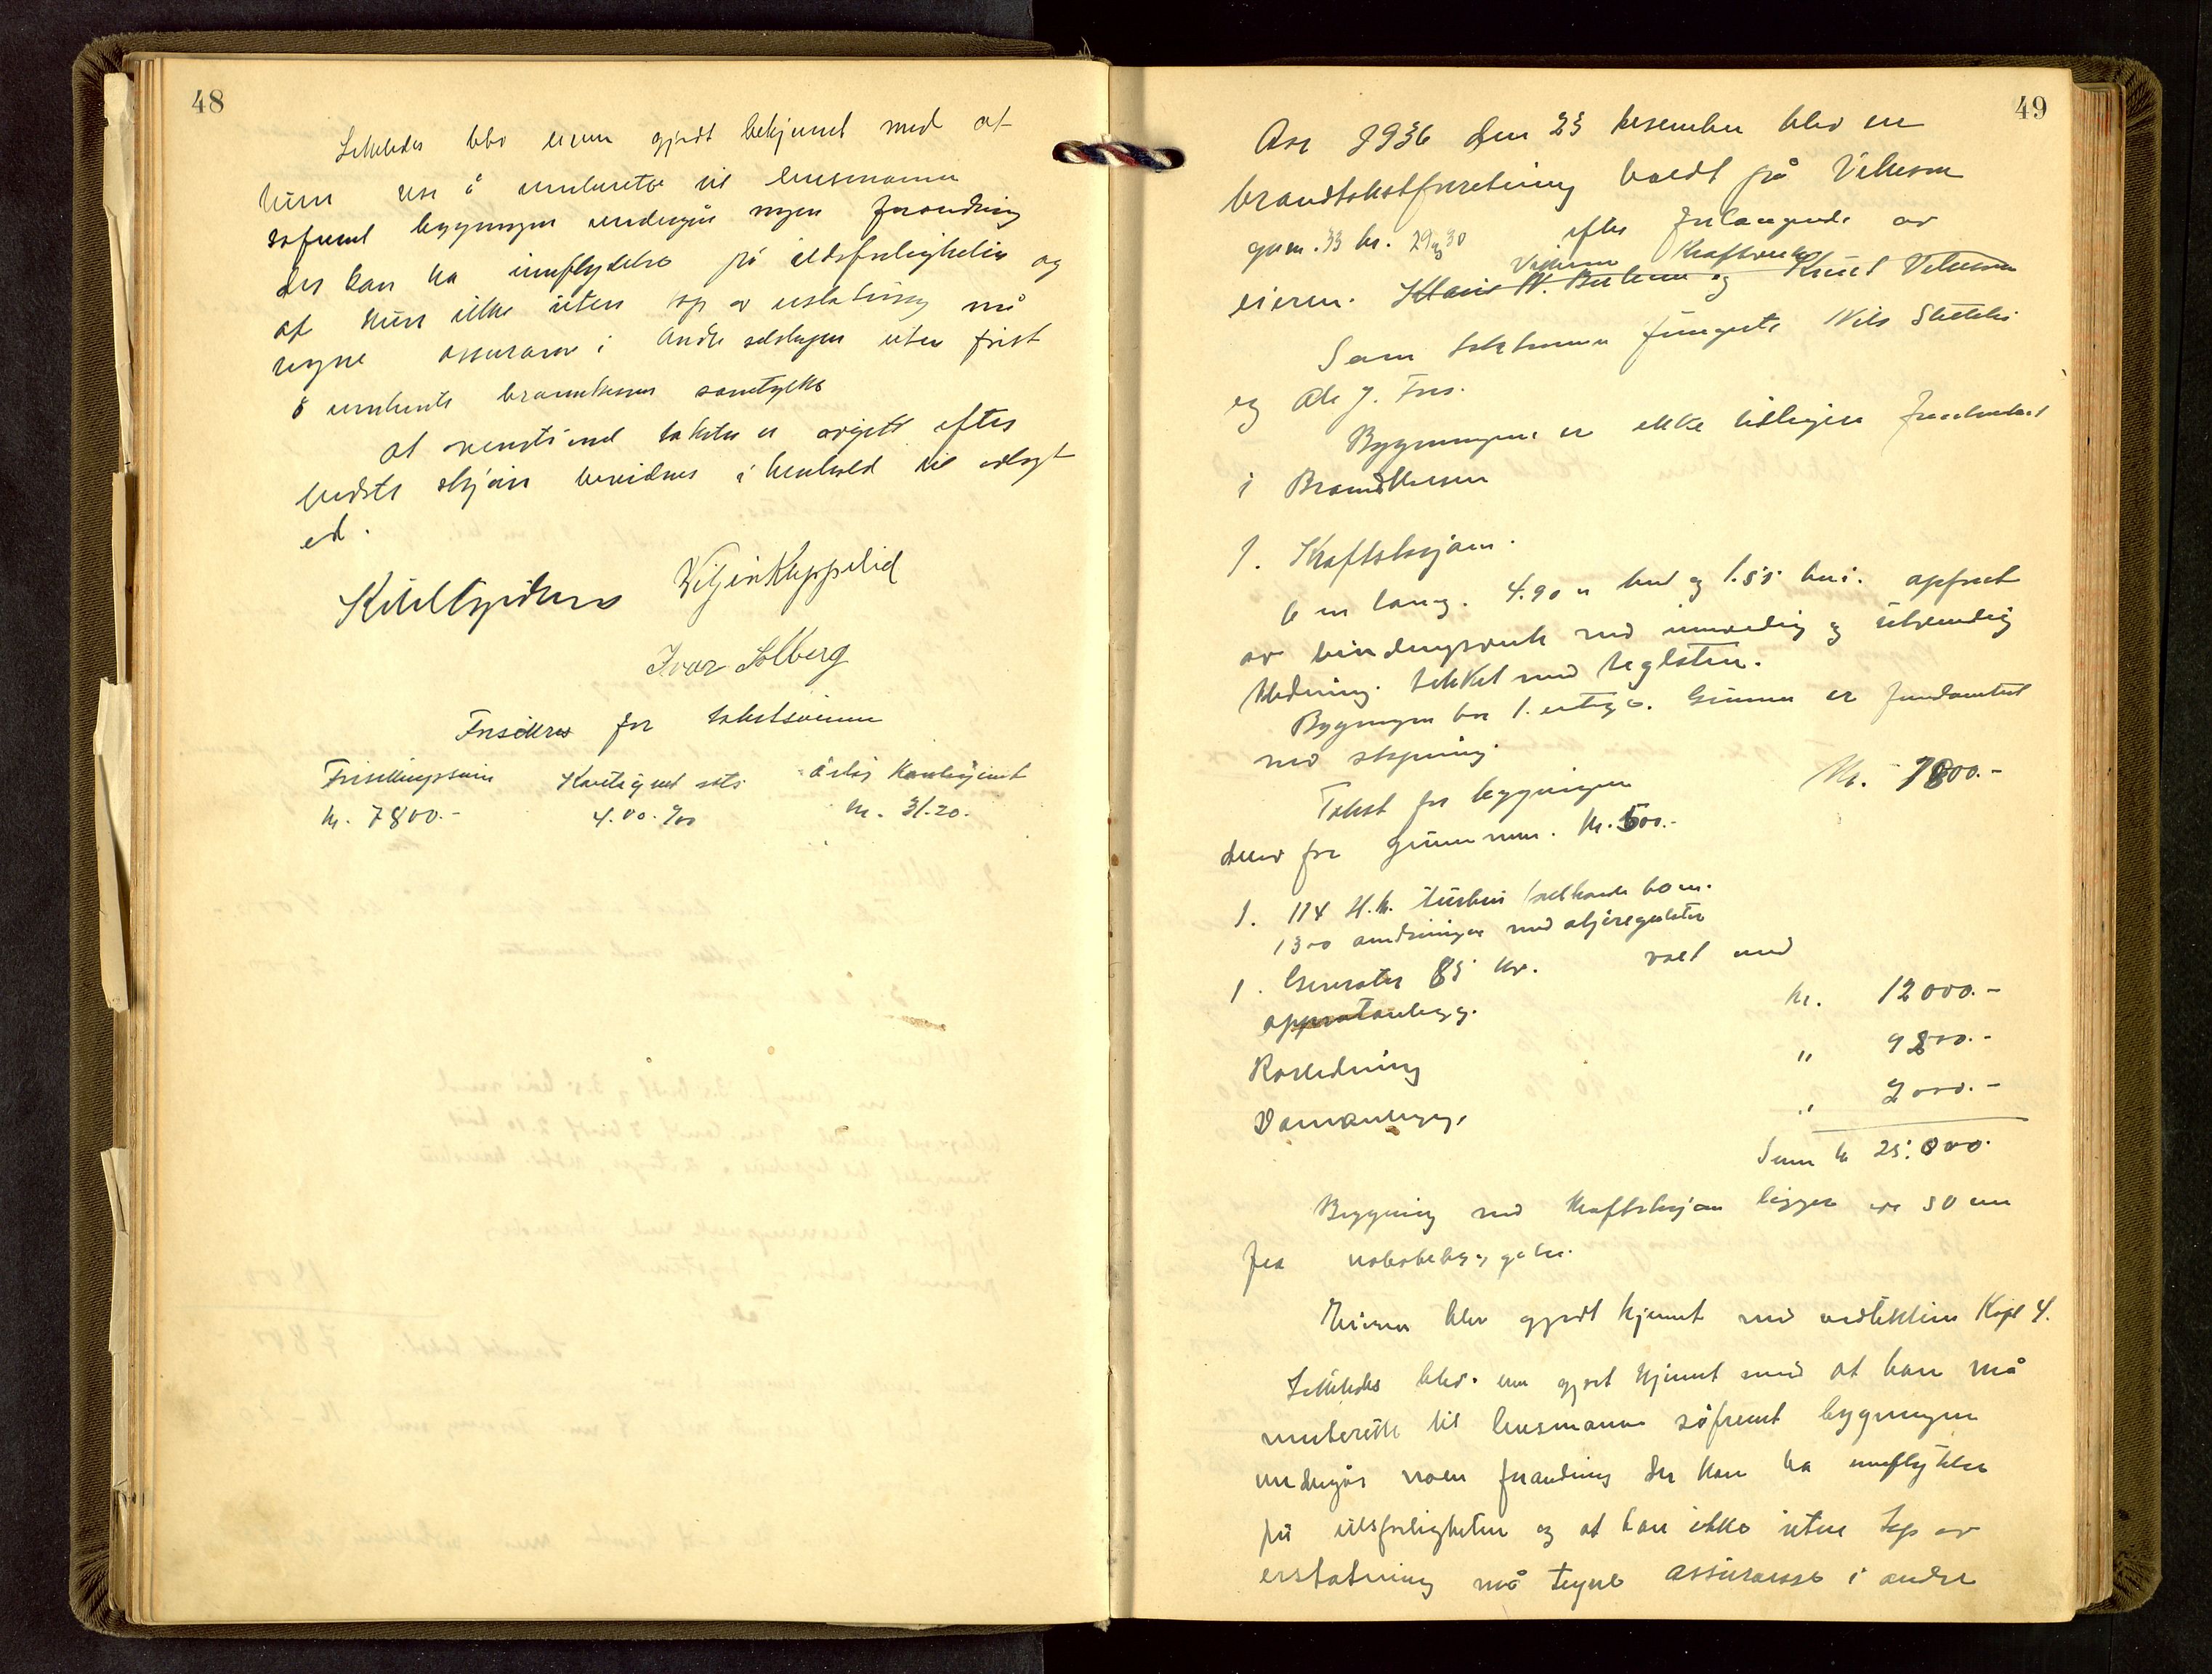 48
Likeledes blev eieren gjordt bekjennt med at
hun har å underrette til lensmannen
såfremt bygningen undergår nogen forandring
der kan ha innflydelse på ildsfarligheten og
at hun ikke uten tap av erstatning må
tegne assuranse i andre selskaper uten først
å innhente brannkassens samtykke
At ovenstående takster er avgitt efter
bedste skjøn bevidnes i henhold til avlagt
ed.
Ivar Solberg
Forsikres for takstsummen
Forsikringssum Kontigent sats årlig Kontigent
kr. 7800.- 4.00 ‰ kr. 31.20.
49
Aar 1936 den 23 desember blev en
brandtakstforretning holdt på Vikesøen
gnr. 33 br. 29 og 30 efter forlangende av
Kraftverk
eieren. og Knut Vikesøen
Som takstmenn fungerte Nils
og Ole J.
Bygningene er ikke tidligere forsikret
i Brandkassen
1. Kraftstasjon.
6 m lang. 4.90 m bred og 1.55 høi. opført
av bindingsverk med innvendig og utvendig
kledning. tekket med teglsten.
Bygningen har 1. etage. Grunnen er fundamentert
med støpning.
Takst for bygningen kr. 1800.-
derav for grunnmur. kr. 500.-
1. 114 H.k. turbin
1300 omdreininger med oljeregulator
1. Generator 85 kv. volt med
apparatanlegg. kr. 12000.-
Rørledning " 9200.-
Damanlegg. " 2000.-
Sum kr 25.000.
Bygning med kraftstasjon ligger 50 m
fra nabobebyggelse.
Eieren blev gjordt kjennt med vedtektene Kap 4.
Likeledes blev han gjort kjennt med at han må
underrette til lensmannen såfremt bygningen
undergår noen forandring der kan ha innflytelse
på ildsfarligheten og at han ikke uten tap av
erstatning må tegne assuranse i andre